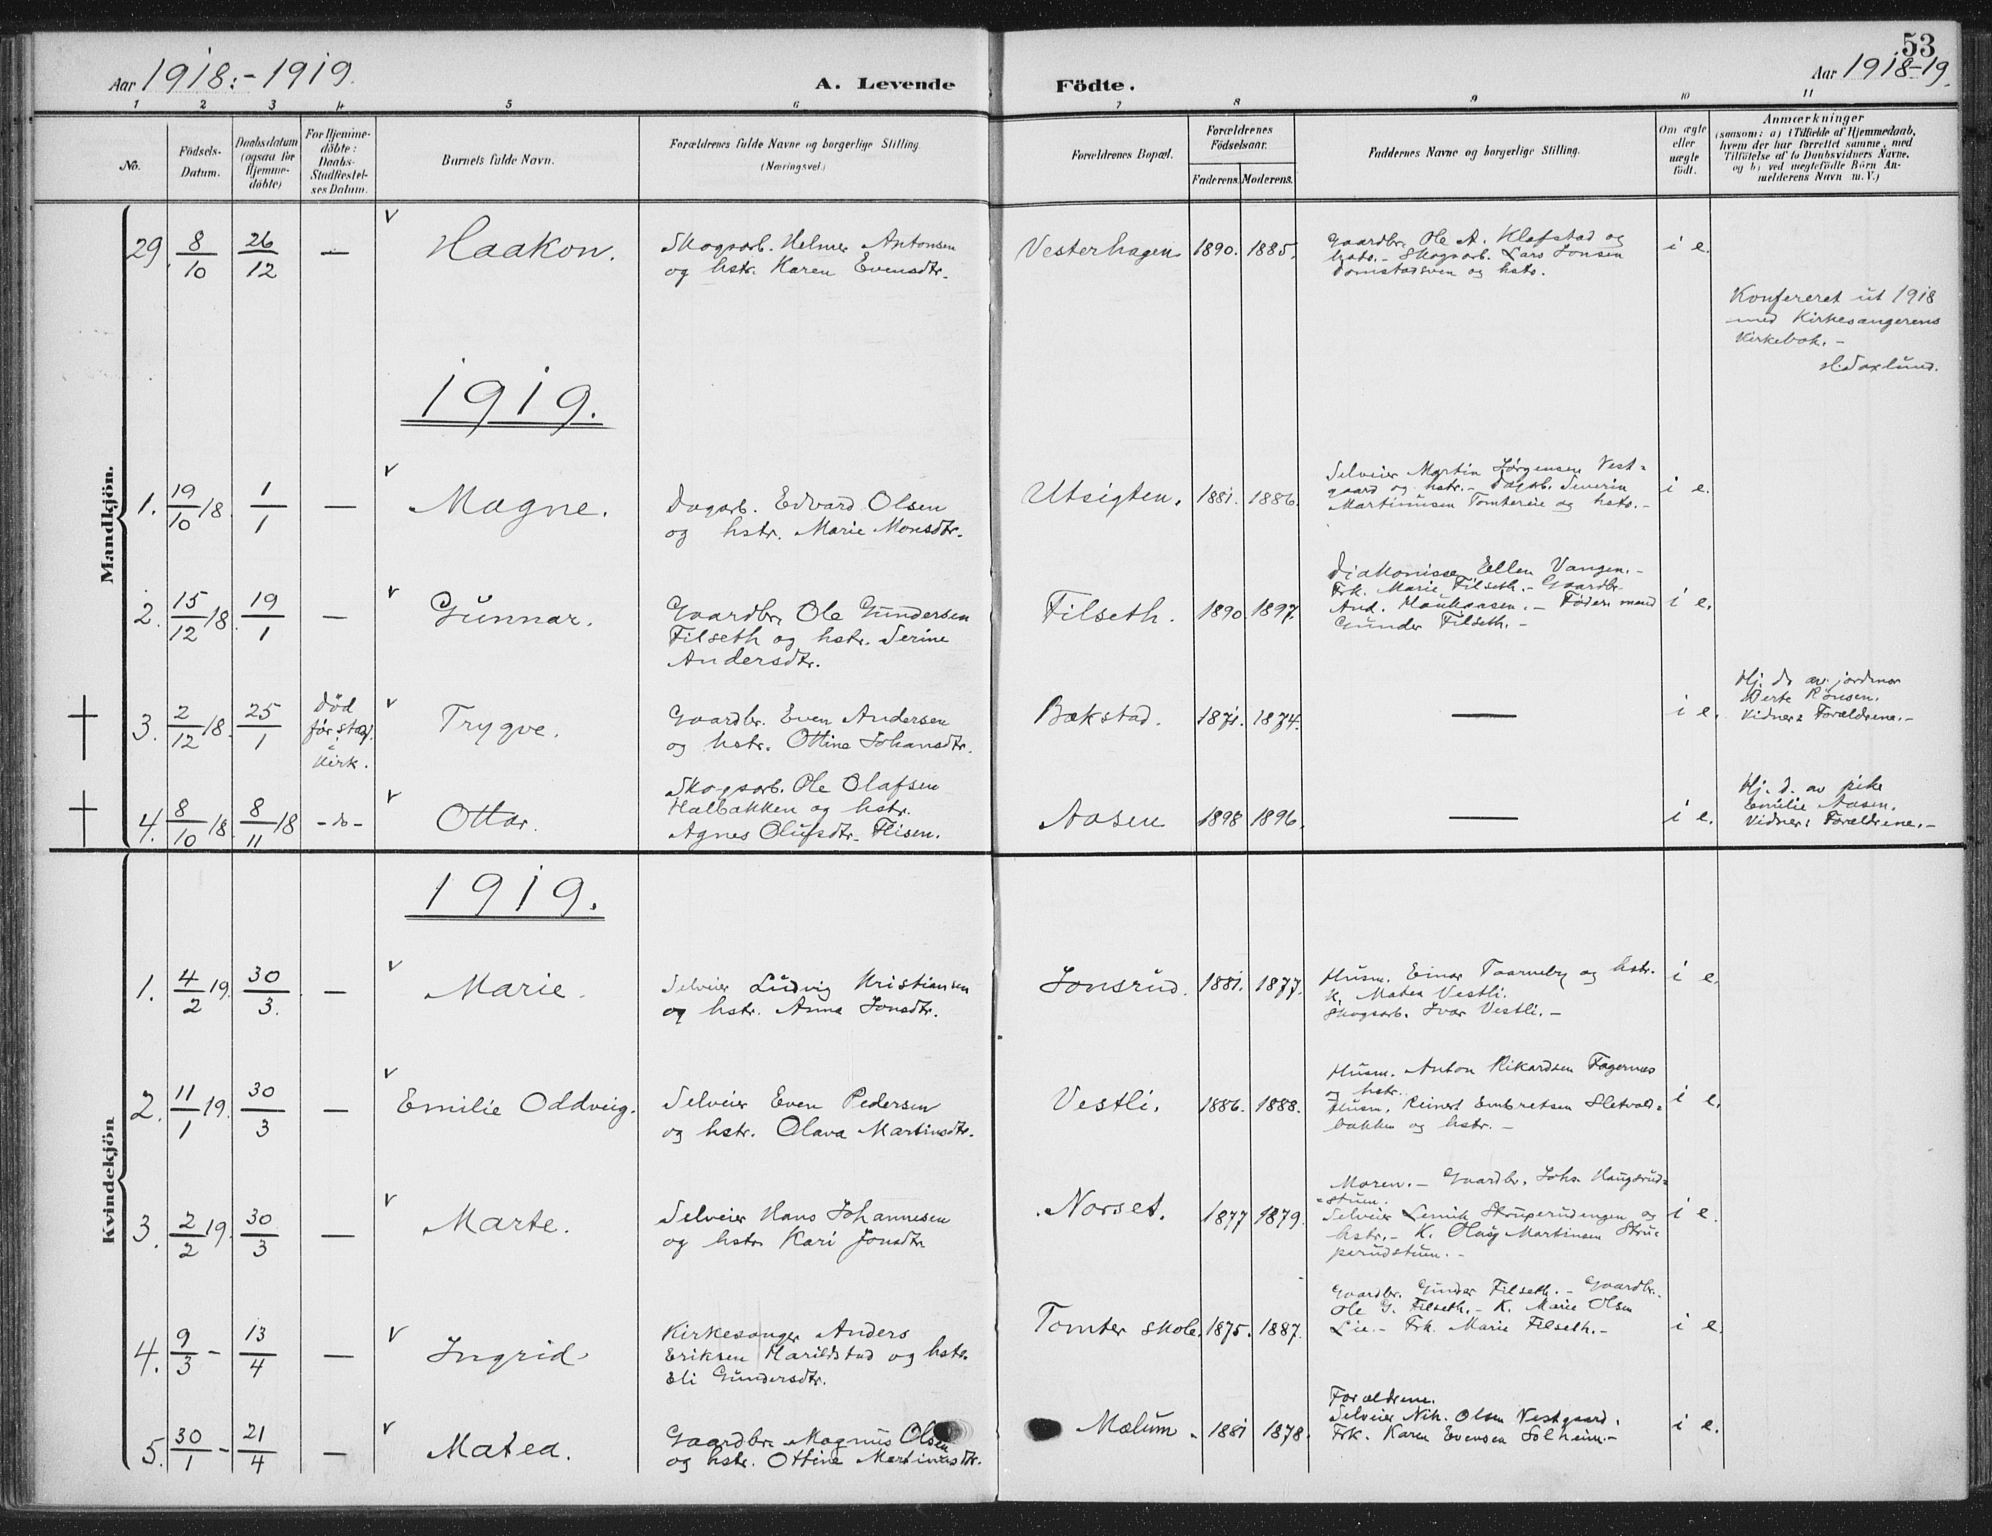 53
Aar 1918:-1919.
A. Levende Födte.
Aar 1918-19.
1 2 3 4 5 6 7 8 9 10 11
No.
Födsels-
Datum.
Daabsdatum
(ogsaa for
Hjemme-
döbte)
For Hjemme-
döbte:
Daabs-
Stadfæstel-
ses Datum.
Barnets fulde Navn.
Forældrenes fulde Navne og borgerlige Stilling.
(Næringsvei.)
Forældrenes Bopæl.
Forældrenes
Födselsaar.
Faderens. Moderens.
Faddernes Navne og borgerlige Stilling.
Om ægte
eller
uægte
født.
Anmærkninger
(saasom: a) i Tilfælde af Hjemmedaab,
hvem der har forrettet samme, med
Tilföielse af to Daabsvidners Navne,
og b) ved uægtefödte Börn An-
melderens Navn m. V.)
Mandkjön.
29. 8/10 26/12 — v Haakon.
Skogsarb. Helmer Antonsen
og hstr. Karen Evensdtr.
Vesterhagen 1890. 1885.
Gaardbr. Ole A. Klafstad og
hstr. - Skogsarb. Lars Jonsen
Tomstadsven og hstr.
i e.
Konfereret ut 1918
med Kirkesangerens
Kirkebok. -
H. Saxlund.
1919.
1. 19/10 18. 1/1 — v Magne.
Dagarb. Edvard Olsen
og hstr. Marie Monsdtr.
Utsigten. 1881. 1886.
Selveier Martin Jørgensen Vest-
gaard og hstr. - Dagarb. Severin
Martinusen Tomtereie og hstr. -
i e.
2. 15/12 18. 19/1 — v Gunnar.
Gaardbr. Ole Gundersen
Filseth og hstr. Serine
Andersdtr.
Filseth. 1890. 1897.
Diakonisse Ellen Vangen. -
Frk. Marie Filseth. - Gaardbr.
And. Mauhaasen. - Føder mand
Gunder Filseth. -
i e.
3. 2/12 18. 25/1 Død
før stadf.
i kirk. v Trygve.
Gaardbr. Even Andersen
og hstr. Ottine Johansdtr.
Bækstad. 1871. 1874.
—
i e.
Hj. d. av jordmor
Berte Rønsen.
Vidner: Forældrene. -
4. 8/10 18. 8/11 18 - do - v Ottar.
Skogsarb. Ole Olafsen
Halbakken og hstr.
Agnes Olufsdtr. Flisen.
Aasen 1898 1896.
—
i e.
Hj. d. av pike
Emilie Aasen.
Vidner: Forældrene. -
Kvindekjön
1919.
1. 4/2 19. 30/3. — v Marie.
Selveier Ludvig Kristiansen
og hstr. Anna Jonsdtr.
Jonsrud. 1881. 1877.
Husm. Einar Taarneby og hstr.
K. Matea Vestli.
Skogsarb. Ivar Vestli. -
i e.
2. 11/1 19. 30/3 — v Emilie Oddveig.
Selveier Even Pedersen
og hstr. Olava Martinsdtr.
Vestli. 1886. 1888.
Husm. Anton Rikardsen Fagernes
og hstr.
Husm. Reinert Embretsen Sletvold-
bakken og hstr. -
i e.
3. 2/2 19. 30/3 — v Marte.
Selveier Hans Johannesen
og hstr. Kari Jonsdtr
Norset. 1877 1879.
Moren. - Gaardbr. Johs. Haugsrud-
=stuen.
Selveier Lemik Struperudengen og
hstr. - K. Oluf Martinsen Stru-
perudstuen. -
i e.
4. 9/3 - 13/4 — v Ingrid.
Kirkesanger Anders
Eriksen Harildstad og hstr.
Eli Gundersdtr.
Tomter skole. 1875. 1887.
Gaardbr. Gunder Filseth. - Gaardbr.
Ole G. Filseth. - K. Marie Olsen
Lie. - Frk. Marie Filseth. -
i e.
5. 30/1 - 21/4 — v Matea.
Gaardbr. Magnus Olsen
og hstr. Ottine Martinusdtr.
Mælum. 1881 1878.
Forældrene.
Selveier Nik. Olsen Vestgaard.
Frk. Karen Evensen Solheim. -
i e.